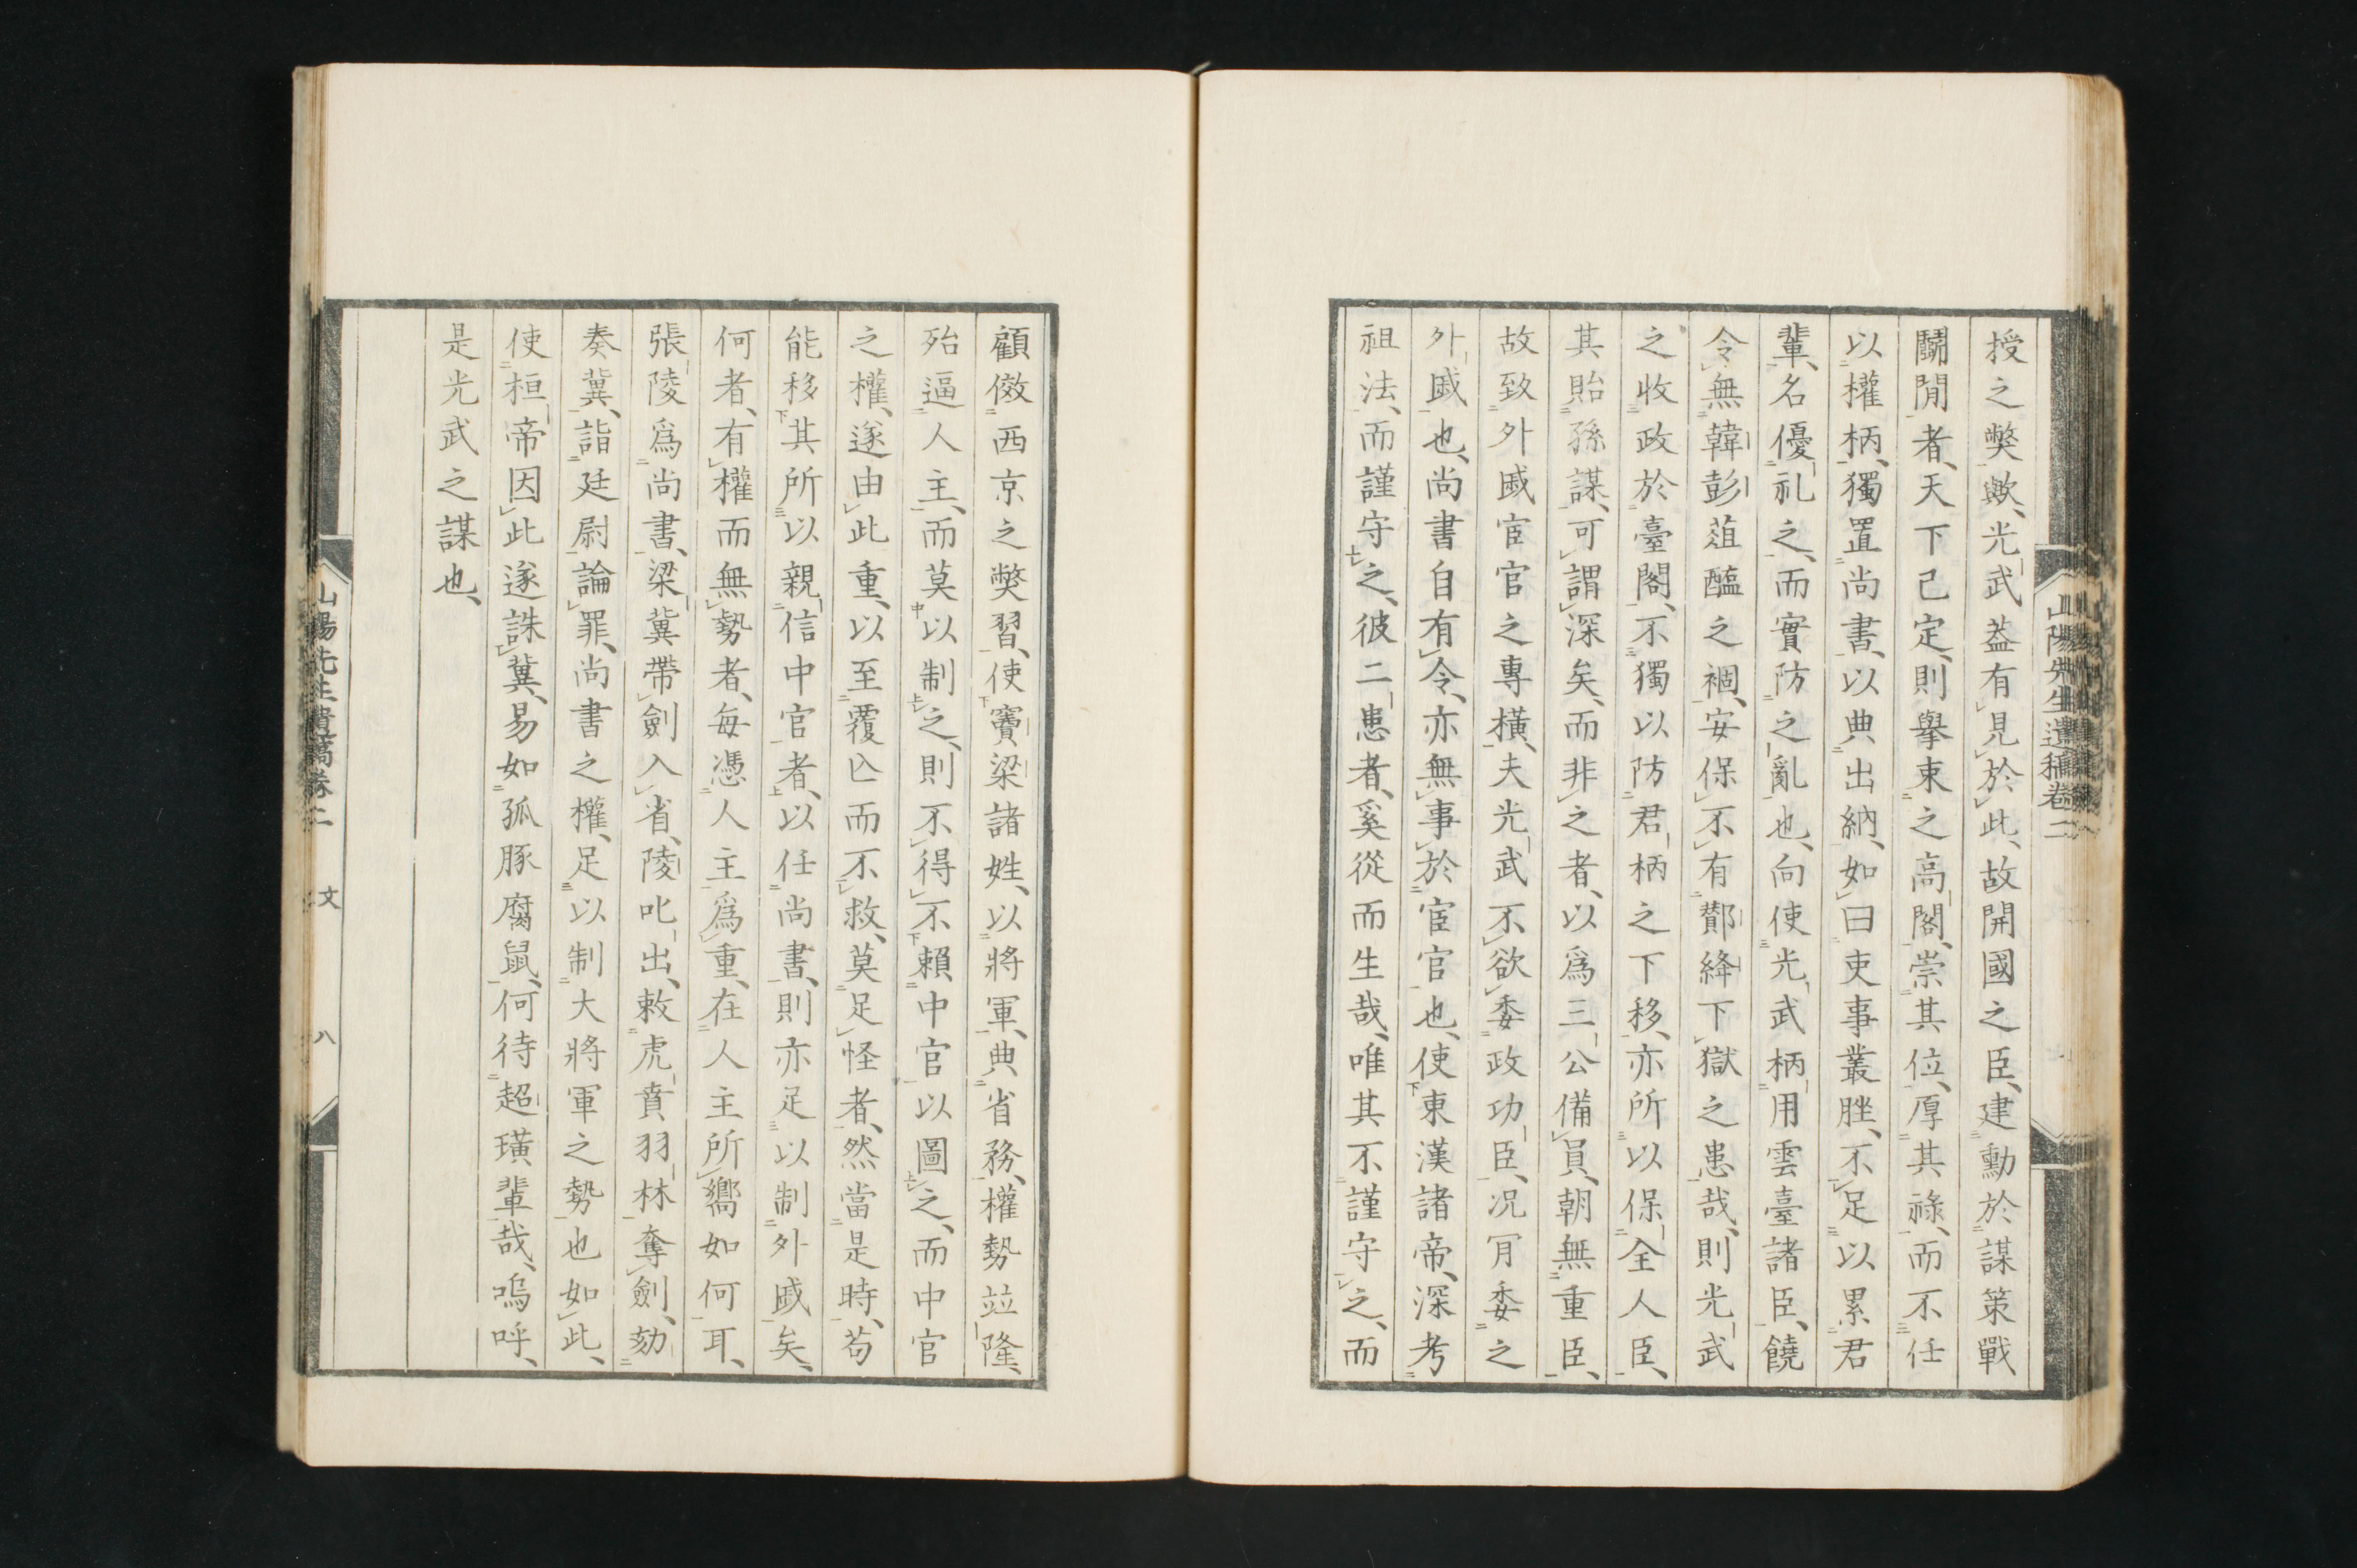 授之弊歟、光武蓋有見於此、故開國之臣、建勳於謀策戰
鬭閒者、天下已定、則擧束之高閣、崇其位、厚其祿、而不任
以權柄、獨置尚書、以典出納、如曰吏事叢脞、不足以累君
輩、名優礼之、而實防之亂也、向使光武柄用雲臺諸臣、饒
令無韓彭葅醢之禍、安保不有酇絳下獄之患哉、則光武
之收政於臺閣、不獨以防君柄之下移、亦所以保全人臣、
其貽孫謀、可謂深矣、而非之者、以爲三公備員、朝無重臣、
故致外戚宦官之專橫、夫光武不欲委政功臣、况肎委之
外戚也、尚書自有令、亦無事於宦官也、使東漢諸帝、深考
祖法、而謹守之、彼二患者、奚從而生哉、唯其不謹守之、而
山陽先生遺稿卷二
顧傚西京之弊習、使竇梁諸姓、以將軍、典省務、權勢竝隆、
殆逼人主、而莫以制之、則不得不賴中官以圖之、而中官
之權、遂由此重、以至覆亾而不救、莫足怪者、然當是時、苟
能移其所以親信中官者、以任尚書、則亦足以制外戚矣、
何者、有權而無勢者、每憑人主爲重、在人主所嚮如何耳、
張陵爲尚書、梁冀帶劍入省、陵叱出、敕虎賁羽林奪劍、劾
奏冀、詣廷尉論罪、尚書之權、足以制大將軍之勢也如此、
使桓帝因此遂誅冀、易如孤豚腐鼠、何待超璜輩哉、嗚呼、
是光武之謀也、
山陽先生遺稿卷二 文 八